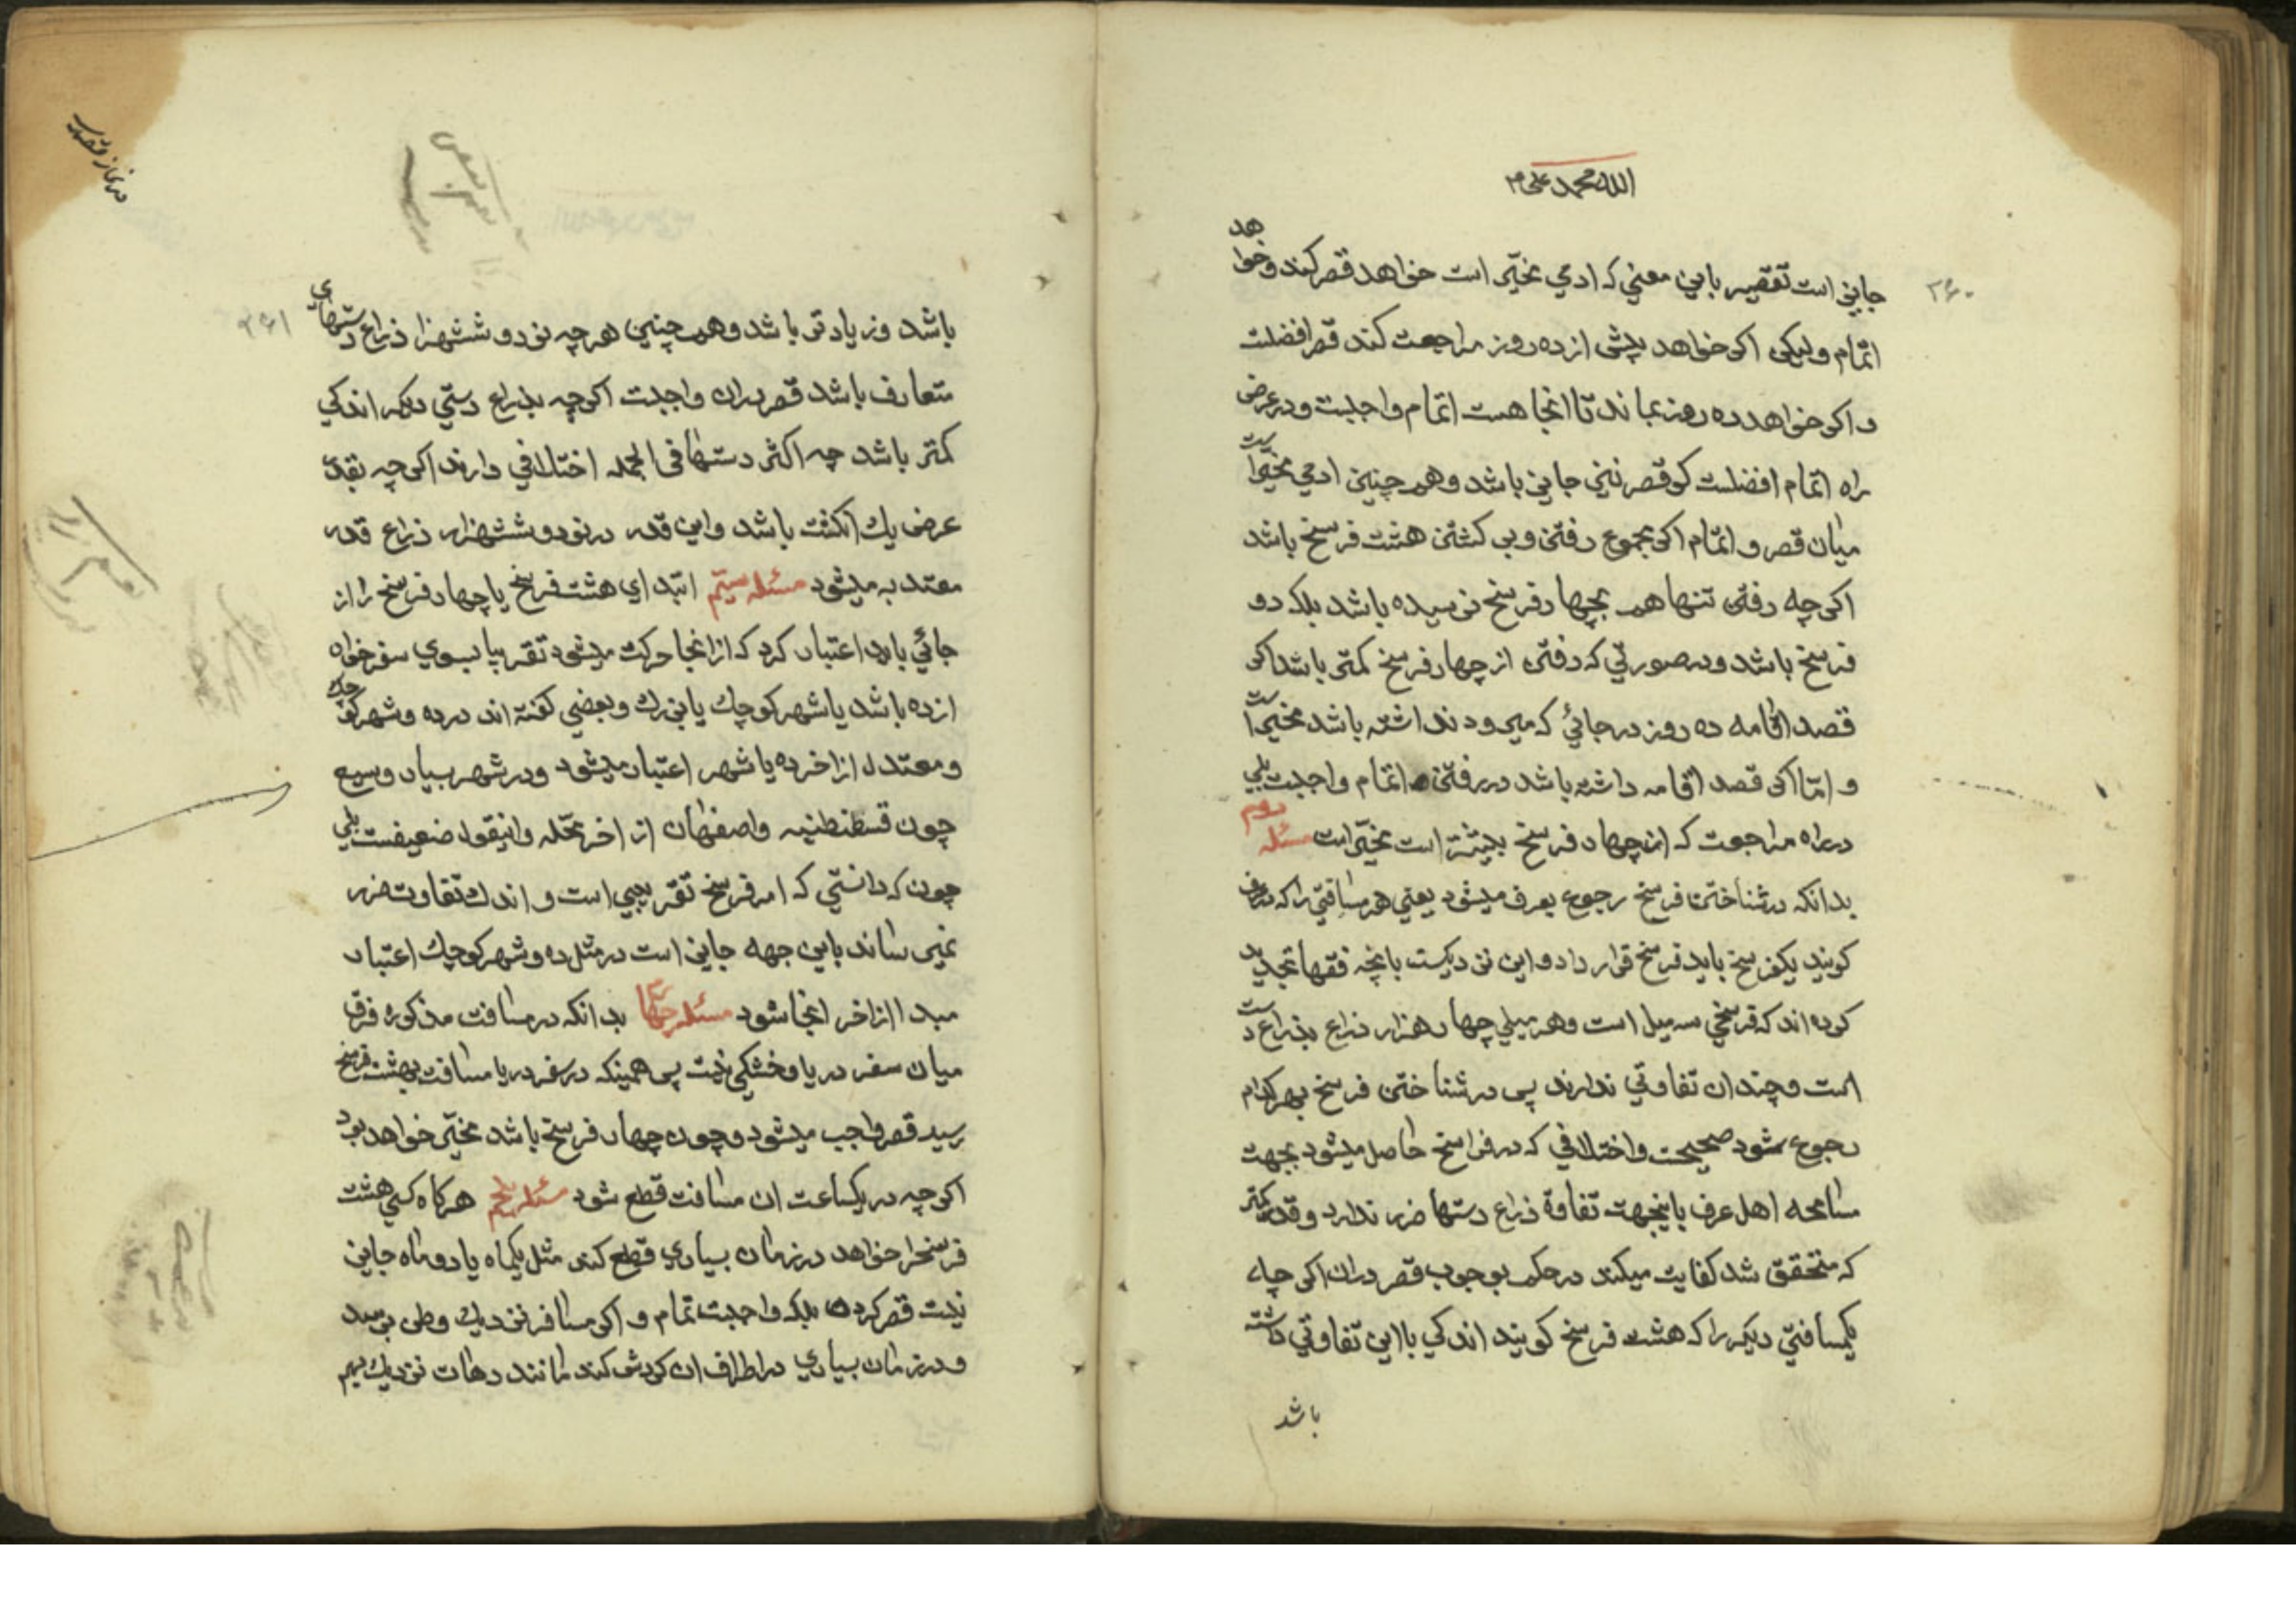 الله محمد علی م
۲۶۰
جایز است تقصیر باین معنی که ادمی مخیّر است خواهد قصر کند و خواهد
اتمام ولیکن اکر خواهد پیش از ده روز مراجعت کند قصر افضلست
و اکر خواهد ده روز بماند تا انجا هست اتمام واجبست و در عرض
راه اتمام افضلست کو قصر نیز جایز باشد و همچنین ادمی مخیّر است
میان قصر و اتمام اکر مجموع رفتن و بر کشتن هشت فرسخ باشد
اکر چه رفتن تنها هم بچهار فرسخ نرسیده باشد بلکه دو
فرسخ باشد و در صورتی که رفتن از چهار فرسخ کمتر باشد اکر
قصد اقامه ده روز در جائی که میرود نداشته باشد مخیر است
و امّا اکر قصد اقامه داشته باشد در رفتن اتمام واجبست بلی
در راه مراجعت که از چهار فرسخ بیشتر است مخیّر است مسئله دویم
بدانکه در شناختن فرسخ رجوع بعرف میشود یعنی هر مسافتی را که در عرف
کویند یکفرسخ باید فرسخ قرار داد و این نزدیکست بانچه فقها تحدید
کرده اند که فرسخی سه میل است و هر میلی چهار هزار ذراع بذراع دست
است و چندان تفاوتی ندارند پس در شناختن فرسخ بهر کدام
رجوع شود صحیحست و اختلافی که در فراسخ حاصل میشود بجهت
مسامحه اهل عرف یا بجهت تفاوة ذراع دستها ضرر ندارد و قدر کمتر
که متحقق شد کفایت میکند در حکم بوجوب قصر در ان اکر چه
یکمسافتی دیکر را که هشت فرسخ کویند اندکی با این تفاوتی داشته
باشد
در نماز قصر
۲۶۱
باشد و زیادتر باشد و همچنین هر چه نود و ششهزار ذراع دستهای
متعارف باشد قصر در ان واجبست اکر چه بذراع دستی دیکر اندکی
کمتر باشد چه اکثر دستها فی الجمله اختلافی دارند اکر چه بقدر
عرض یك انکشت باشد و این قدر در نود و ششهزار ذراع قدر
معتد به میشود مسئله سیّم ابتدای هشت فرسخ یا چهار فرسخ را از
جائی باید اعتبار کرد که از انجا حرکت میشود تقریبا بسوی سفر خواه
از ده باشد یا شهر کوچك یا بزرك و بعضی کفته اند در ده و شهر کوچك
و معتدل از اخر ده یا شهر اعتبار میشود و در شهر بسیار وسیع
چون قسطنطنیه و اصفهان از اخر محله و اینقول ضعیفست بلی
چون که دانستی که امر فرسخ تقریبی است و اندك تفاوت ضرر
نمیرساند باین جهه جایز است در مثل ده و شهر کوچك اعتبار
مبدا از اخر انجا شود مسئله چهارم بدانکه در مسافت مذکوره فرق
میان سفر دریا و خشکی نیست پس همینکه در سفر دریا مسافت بهشت فرسخ
رسید قصر واجب میشود و چون چهار فرسخ باشد مخیّر خواهد بود
اکر چه در یکساعت ان مسافت قطع شود مسئله پنجم هرکاه کسی هشت
فرسخرا خواهد در زمان بسیاری قطع کند مثل یکماه یا دو ماه جایز
نیست قصر کردن بلکه واجبست تمام و اکر مسافر نزدیك وطن برسد
و در زمان بسیاری در اطراف ان کردش کند مانند دهات نزدیك بهم